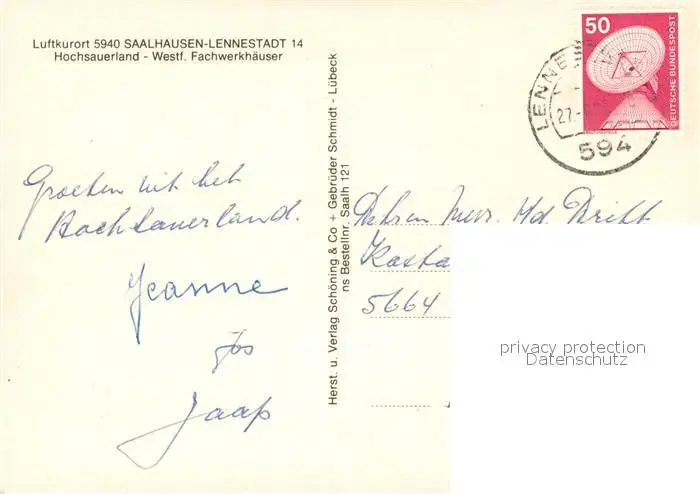 Luftkurort 5940 SAALHAUSEN-LENNESTADT 14
Hochsauerland - Westf. Fachwerkhäuser
Groeten uit het
Hochsauerland.
Jeanne
Jos
Jaap
Herst. u. Verlag Schöning & Co + Gebrüder Schmidt - Lübeck
ns Bestellnr. Saalh 121
50
DEUTSCHE BUNDESPOST
LENNE
27.
594
Mevr. Md
Kasta
5664
privacy protection
Datenschutz